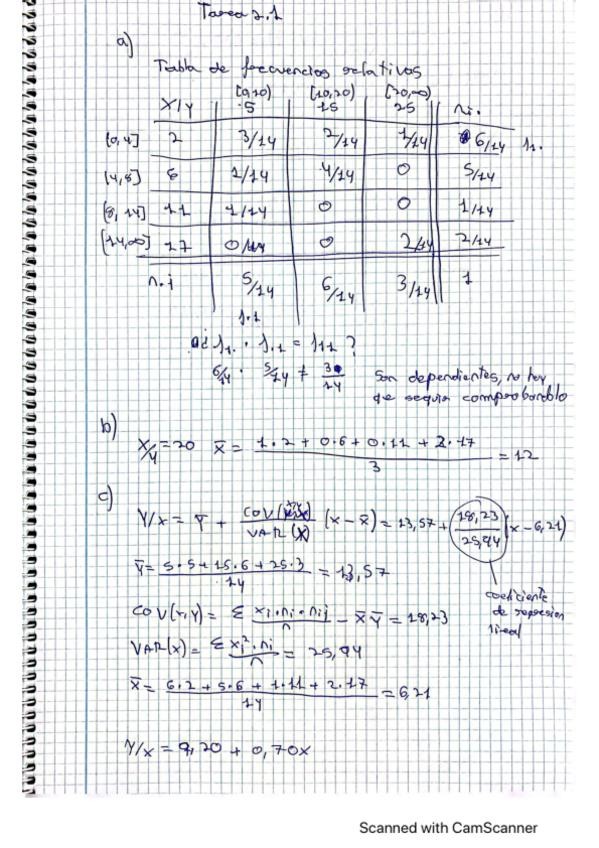 Tarea 2.1
a)
Tabla de frecuencias relativas
[0,10) [10,20) [20,∞)
X/Y 5 15 25 ni.
[0,4] 2 3/14 2/14 1/14 6/14 f1.
(4,8] 6 1/14 4/14 0 5/14
(8,14] 11 1/14 0 0 1/14
(14,∞) 17 0/14 0 2/14 2/14
n.j 5/14 6/14 3/14 1
f.1
¿ f1. · f.1 = f11 ?
6/14 · 5/14 ≠ 3/14 Son dependientes, no hay
que seguir comprobandolo
b)
X/Y=20 x̄ = 1·2 + 0·6 + 0·11 + 2·17 / 3 = 12
c)
Y/X = Ȳ + COV(X,Y) / VAR(X) (x - x̄) = 13,57 + 18,23 / 25,94 (x - 6,21)
Ȳ = 5·5 + 15·6 + 25·3 / 14 = 13,57
coeficiente
de regresion
lineal
COV(X,Y) = Σ xi·ni·nij / n - X̄ Ȳ = 18,23
VAR(X) = Σ xi²·ni / n = 25,94
x̄ = 6·2 + 5·6 + 1·11 + 2·17 / 14 = 6,21
Y/X = 9,20 + 0,70x
Scanned with CamScanner